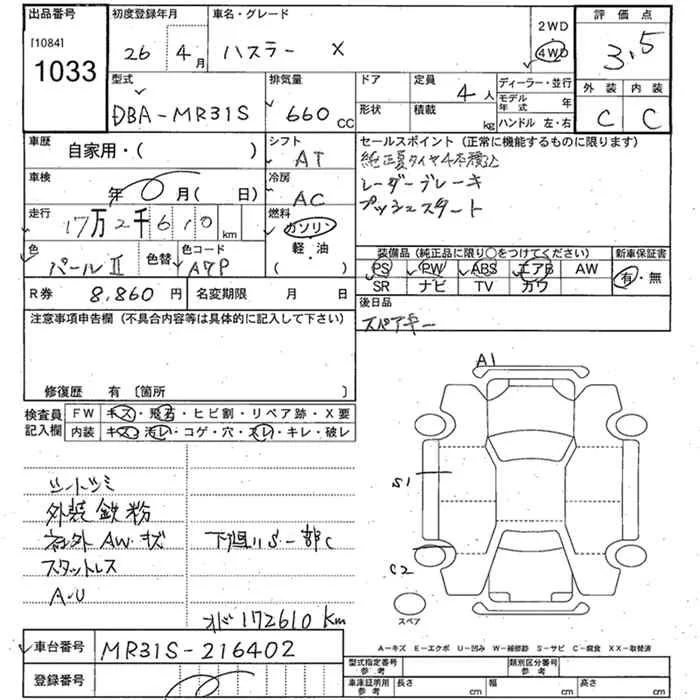 出品番号
[1084]
1033
初度登録年月
26 年 4 月
車名・グレード
ハスラー X
2WD
4WD
評価点
3.5
外装 内装
C C
型式
DBA-MR31S
排気量
660 CC
ドア
定員
4 人
形状
積載
kg
ディーラー・並行
モデル年式 年
ハンドル 左・右
車歴
自家用・( )
シフト
AT
車検
年 0 月( 日)
冷房
AC
走行
17万2千610 km
燃料
ガソリン
軽・油
( )
色
パールⅡ
色替
色コード
A7P
セールスポイント(正常に機能するものに限ります)
純正夏タイヤ4本積込
レーダーブレーキ
プッシュスタート
装備品(純正品に限り○をつけてください)
新車保証書
PS PW ABS エアB AW
SR ナビ TV カワ
有・無
R券 8,860 円
名変期限 月 日
後日品
スペアキー
注意事項申告欄(不具合内容等は具体的に記入して下さい)
修復歴 有〔箇所 〕
検査員記入欄
FW キズ・飛石・ヒビ割・リペア跡・X要
内装 キズ・汚レ・コゲ・穴・スレ・キレ・破レ
シートシミ
外装鉄粉
ネ外 AW.キズ
スタットレス
A-U
下廻りS一部C
オド172610 km
A1
S1
C2
スペア
A-キズ E-エクボ U-凹み W-補修跡 S-サビ C-腐食 XX-取替済
車台番号
MR31S-216402
登録番号
型式指定番号参考
類別区分番号参考
車庫証明用参考
長さ cm
幅 cm
高さ cm